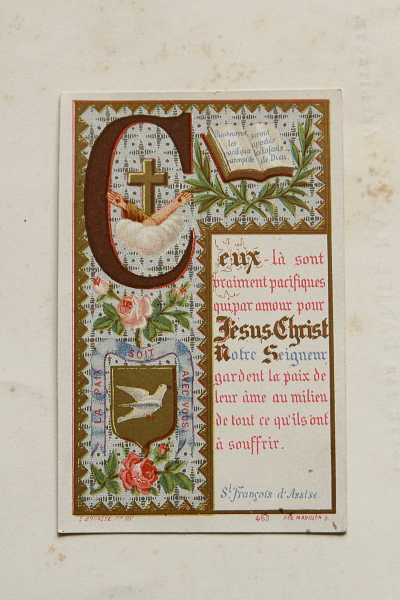 Bienheureux seront
les appelés
pacifiques les Enfants
parcequ'ils de Dieu.
Ceux-là sont
vraiment pacifiques
qui par amour pour
Jésus Christ
Notre Seigneur
gardent la paix de
leur âme au milieu
de tout ce qu'ils ont
à souffrir.
St. François d'Assise.
LA PAIX SOIT AVEC VOUS
463